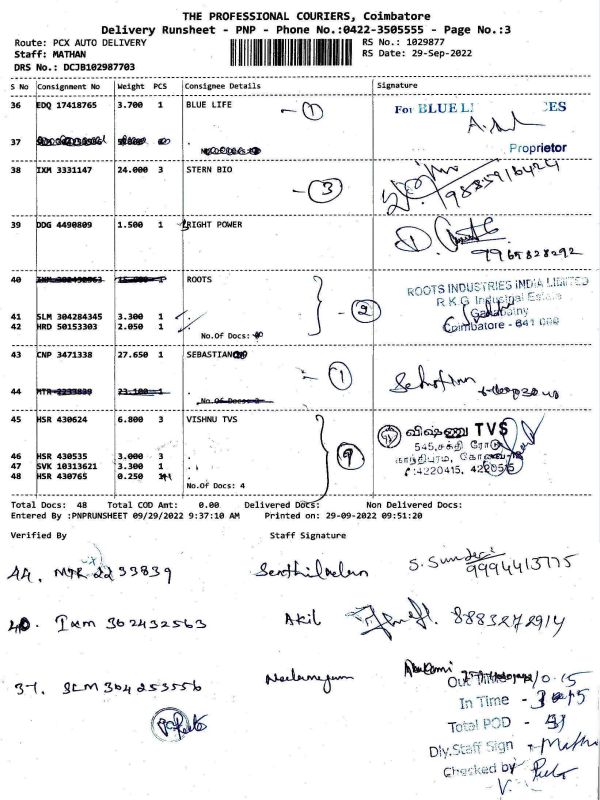 THE PROFESSIONAL COURIERS, Coimbatore
Delivery Runsheet - PNP - Phone No.:0422-3505555 - Page No.:3
Route: PCX AUTO DELIVERY
RS No.: 1029877
Staff: MATHAN
RS Date: 29-Sep-2022
DRS No.: DCJB102987703
S No Consignment No Weight PCS Consignee Details Signature
36 EDQ 17418765 3.700 1 BLUE LIFE - 1 For BLUE
Proprietor
37
38 IXM 3331147 24.000 3 STERN BIO - 3
39 DDG 4490809 1.500 1 RIGHT POWER
9965828292
40 IXM 302432563 15.000 1 ROOTS - 2 ROOTS INDUSTRIES INDIA LIMITED
R K G Industrial Estate
Ganapathy
Coimbatore - 641 006
41 SLM 304284345 3.300 1
42 HRD 50153303 2.050 1 No.Of Docs:
43 CNP 3471338 27.650 1 SEBASTIAN - 1
44 MTR 2233839 23.100 1 No.Of Docs: 2
45 HSR 430624 6.800 3 VISHNU TVS 9 விஷ்ணு TVS
545, சக்தி ரோடு
காந்திபுரம், கோவை
✆:4220415, 4220515
46 HSR 430535 3.000 3
47 SVK 10313621 3.300 1
48 HSR 430765 0.250 No.Of Docs: 4
Total Docs: 48 Total COD Amt: 0.00 Delivered Docs: Non Delivered Docs:
Entered By :PNPRUNSHEET 09/29/2022 9:37:10 AM Printed on: 29-09-2022 09:51:20
Verified By Staff Signature
44. MTR 2233839 Senthilvelan S. Sundari 9994413775
40. Ixm 302432563 Akil 8883272914
37. SLM 304253556 Neelamegam
Out Time 10.15
In Time -
Total POD -
Dly.Staff Sign -
Checked by